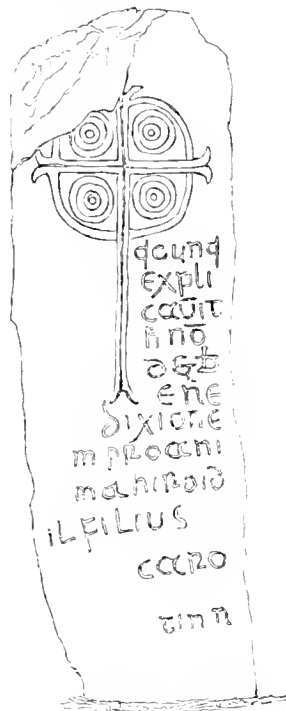 qcunq
expli
caūit
h nō
det b
ene
dixione
m pro ani
ma hiroid
il filius
caro
tinn